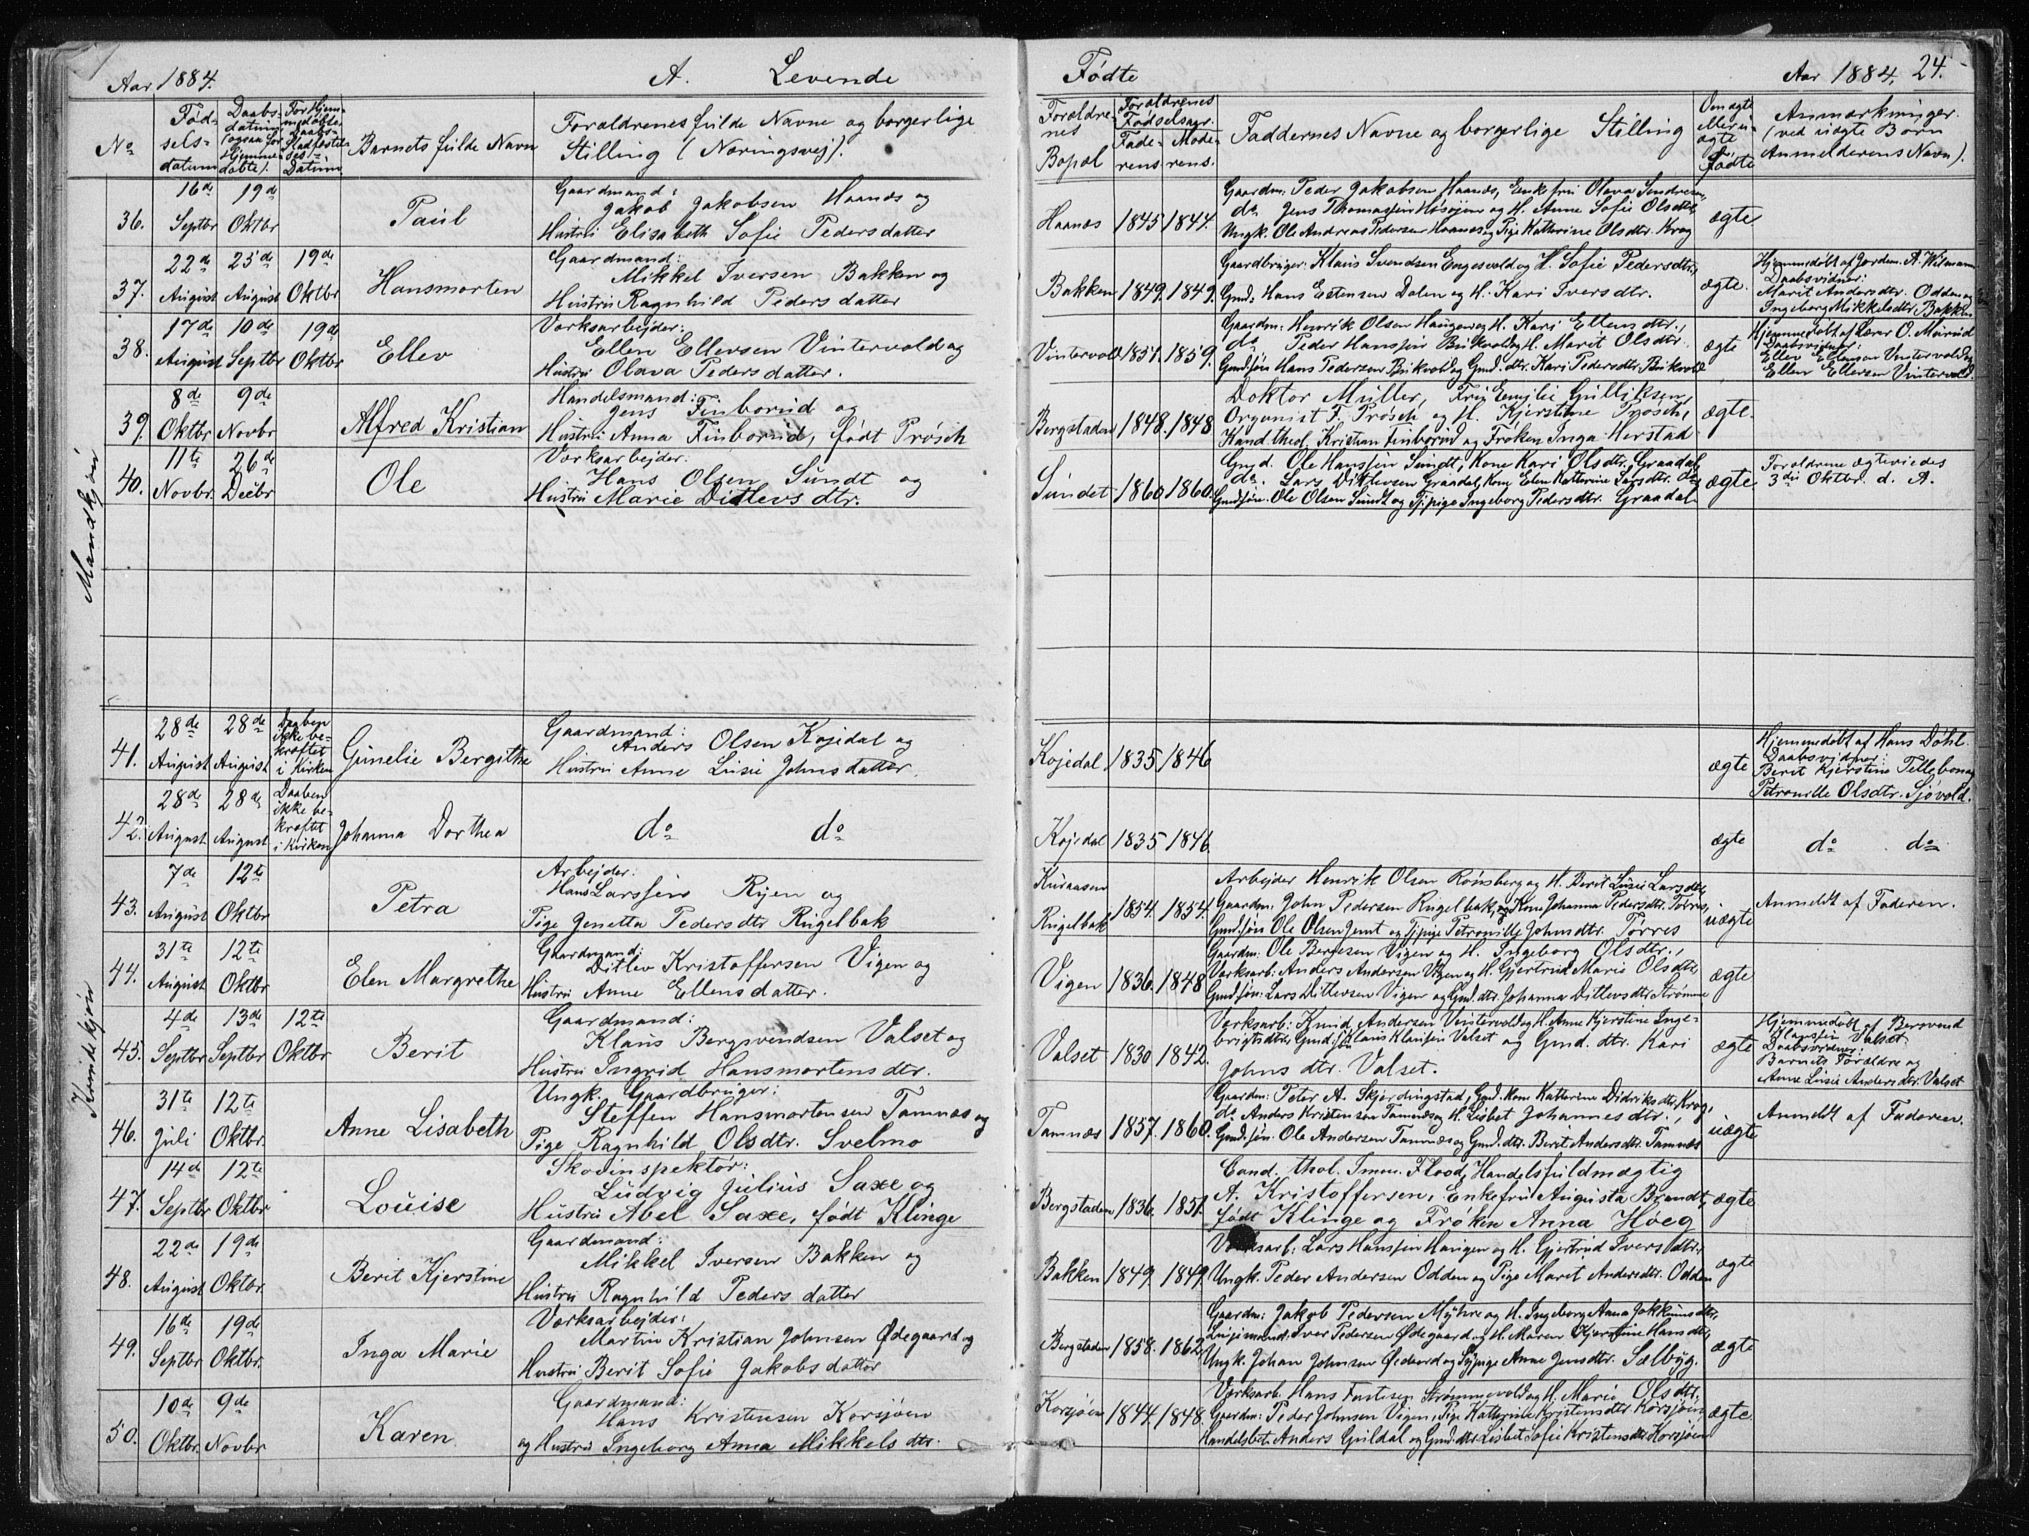 Aar 1884. A. Levende Fødte Aar 1884. 24.
No
Fødselsdatum
Daabsdatum (ogsaa for Hjemmedøbte).
For Hjemmedøbte Daabs-Stadfæstelses-Datum
Barnets fulde Navn
Forældrenes fulde Navne og borgerlige
Stilling (Næringsvej).
Forældrenes Bopæl
Forældrenes Fødselsaar
Faderens Moderens
Faddernes Navne og borgerlige Stilling
Om ægte eller uægte Født
Anmærkninger
(ved uægte Børn
Anmelderens Navn).
Mandkjøn
36. 16de Septbr 19de Oktbr Paul
Gaardmand:
Jakob Jakobsen Haanæs og
Hustru Elisabeth Sofie Pedersdatter
Haanæs 1845 1844.
Gaardm: Peder Jakobsen Haanæs, Enkefru Olava Sundresen,
do Jens Thomassen Høsøjen og H. Anne Sofie Olsdtr,
Ungk. Ole Andreas Pedersen Haanæs og Pige Katherine Olsdtr. Krog
ægte.
37. 22de August 25de August 19de Oktbr Hansmorten
Gaardmand:
Mikkel Iversen Bakken og
Hustru Ragnhild Pedersdatter
Bakken 1849. 1849.
Gaardbruger: Klaus Svendsen Engesvold og H. Sofie Pedersdtr,
Gmd. Hans Estensen Dalen og H. Kari Iversdtr.
ægte.
Hjemmedøbt af Jordem. A. Wismann
Daabsvidner:
Marit Andersdtr. Odden og
Ingeborg Mikkelsdtr Bakken
38. 17de August 10de Septbr 19de Oktbr Ellev
Værksarbejder:
Ellen Ellevsen Vintervold og
Hustru Olava Pedersdatter.
Vintervold 1851. 1859.
Gaardm: Henrik Olsen Haugen og H. Kari Ellensdtr.,
do Peder Hanssen Brikvold og H. Marit Olsdtr
Gmdsøn Hans Pedersen Brikvold og Gmd.dtr. Kari Pedersdtr Brikvold
ægte
Hjemmedøbt af Lærer O.
Daabsvidner:
Ellev Ellensen Vintervold og
Ellen Ellevsen Vintervold.
39. 8de Oktbr 9de Novbr Alfred Kristian
Handelsmand:
Jens Finborud og
Hustru Anna Finborud, født Prøsch
Bergstaden 1848. 1848
Doktor Müller, Fru Emilie Gulliksen,
Organist F. Prøsch og H. Kjerstine Prøsch,
Kand. theol. Kristian Finborud og Frøken Inga Herstad
ægte.
40. 11te Novbr. 26de Decbr Ole
Værksarbejder.
Hans Olsen Sundt og
Hustru Marie Ditlevsdtr.
Sundet 1860 1860.
Gmd. Ole Hanssen Sundt, Kone Kari Olsdtr. Graadal
do. Lars Ditlevsen Graadal, Kone Elen Katherine Larsdtr. do
Gmdsøn. Ole Olsen Sundt og Tj.pige Ingeborg Pedersdtr. Graadal
ægte
Forældrene ægteviedes
3die Oktbr. d. A.
Kvindekjøn
41. 28de August 28de August Daaben ikke bekræftet i Kirken Gunelie Bergithe
Gaardmand:
Anders Olsen Kojedal og
Hustru Anne Lusie Johnsdatter.
Kojedal 1835 1846
ægte
Hjemmedøbt af Hans Døhl.
Daabsvidner:
Berit Kjerstine Tillebon og
Petronille Olsdtr. Sjøvold.
42. 28de August 28de August Daaben ikke bekræftet i Kirken Johanna Dorthea
do do
Kojedal 1835 1846
ægte
do do
43. 7de August 12te Oktbr Petra
Arbejder:
Hans Larssen Ryen og
Pige Jenetta Pedersdtr Rugelbak
Kuraasen
Rugelbak 1854. 1854.
Arbejder Henrik Olsen Rønsberg og H. Berit Lusie Larsdtr,
Gaardm: John Pedersen Rugelbak, og Kone Johanna Pedersdtr. Torres,
Gmdsøn Ole Olsen og Tj.pige Petronille Johnsdtr. Torres
uægte
Anmeldt af Faderen.
44. 31te August 12te Oktbr Elen Margrethe
Gaardmand:
Ditlev Kristoffersen Vigen og
Hustru Anne Ellensdatter.
Vigen 1836. 1848
Gaardm: Ole Berntsen Vigen og H. Ingeborg Olsdtr.,
Værksarb: Anders Andersen Vigen og H. Gjertrud Marie Olsdtr
Gmdsøn: Lars Ditlevsen Vigen og Gmd.dtr. Johanna Ditlevsdtr Strømme
ægte
45. 4de Septbr 13de Septbr 12te Oktbr Berit
Gaardmand:
Klaus Bergsvendsen Valset og
Hustru Ingrid Hansmortensdtr.
Valset 1830 1842.
Værksarb: Knud Andersen Vintervold og H. Anne Kjerstine Inge-
brigtsdtr, Gmd.søn Klaus Klausen Valset og Gmd. dtr. Kari
Johnsdtr. Valset.
ægte
Hjemmedøbt af Bersvend
Klaussen Valset
Daabsvidner:
Barnets Forældre og
Anne Lusie Andersdtr. Valset
46. 31te Juli 12te Oktbr. Anne Lisabeth
Ungk. Gaardbruger:
Steffen Hansmortensen Tamnæs og
Pige Ragnhild Olsdtr. Svelmo
Tamnæs 1857. 1860.
Gaardm: Peter A. Skjerdingstad, Gmd. Kone Katherine Didriksdtr. Krog,
do Anders Kristensen Tamnæs og H. Lisbet Johannesdtr,
Gmd.søn. Ole Andersen Tamnæs og Gmd.dtr. Berit Andersdtr. Tamnæs
uægte
Anmeldt af Faderen.
47. 14de Septbr 12te Oktbr Louise
Skovinspektør:
Ludvig Julius Saxe og
Hustru Abel Saxe, født Klinge
Bergstaden 1836. 1851.
Cand. thol. Imm. Flood, Handelsfuldmægtig
A. Kristoffersen, Enkefru Augusta Brandt,
født Klinge og Frøken Anna Høeg
ægte
48. 22de August 19de Oktbr. Berit Kjerstine
Gaardmand:
Mikkel Iversen Bakken og
Hustru Ragnhild Pedersdatter
Bakken 1849. 1849.
Værksarb: Lars Hanssen Haugen og H. Gjertrud Iversdtr.
Ungk. Peder Andersen Odden og Pige Marit Andersdtr. Odden
ægte
49. 16de Septbr 19de Oktbr. Inga Marie
Værksarbejder:
Martin Kristian Johnsen Ødegaard og
Hustru Berit Sofie Jakobsdatter
Bergstaden 1858. 1862.
Gaardm: Jakob Pedersen Myhre og H. Ingeborg Anna Jokkumsdtr,
Iver Pedersen Ødegaard og H. Maren Kjerstine Hansdtr,
Ungk. Johan Johnsen og Sypige Anne Jensdtr. Sælbyg.
ægte
50. 10de Oktbr. 9de Novbr Karen
Gaardmand:
Hans Kristensen Korsjøen
og Hustru Ingeborg Anna Mikkelsdtr.
Korsjøen 1844. 1848.
Værksarb. Hans Fastesen Strømmevold og H. Marie Olsdtr.
Gaardm: Peder Johnsen Vigen, Pige Katherine Kristensdtr Korsjøen,
Handelsbetj. Anders Guldal og Gmd.dtr. Lisbet Sofie Kristensdtr Korsjøen
ægte.